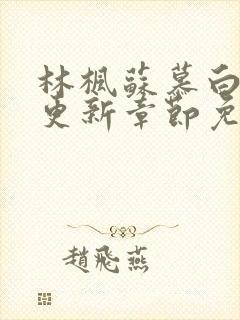 林楓蘇慕白
更新章節免
趙飛燕